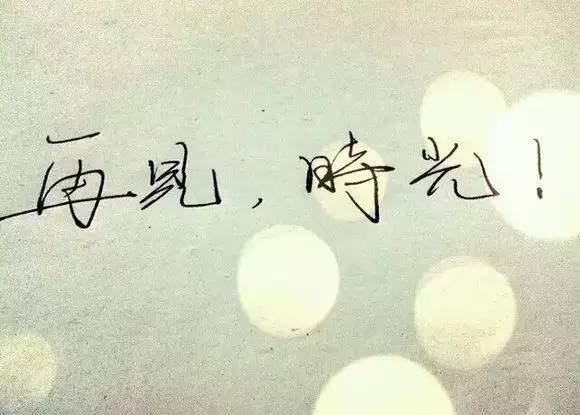 再见，時光！